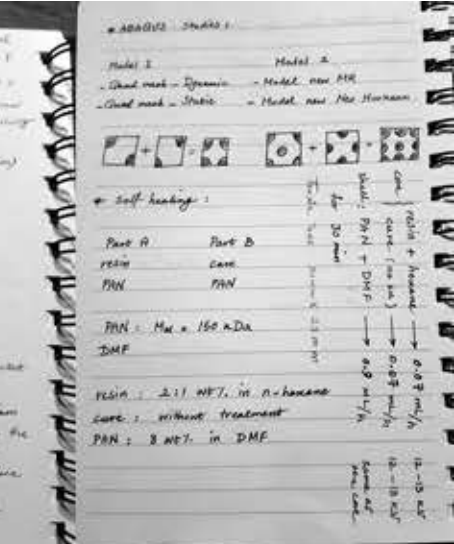 * ABAQUS Studies:
Model 1 Model 2
- Quad mesh - Dynamic - Model new MR
- Quad mesh - Static - Model new Neo Hookean
+ =
+ =
* self healing:
Part A Part B
resin cure
PAN PAN
PAN: Mw = 150 kDa
DMF
resin: 2:1 wt% in n-hexane
cure: without treatment
PAN: 8 wt% in DMF
core
resin + hexane → 0.07 mL/h 12-13 kV
cure (no sol) → 0.07 mL/h 12-13 kV
shell: PAN + DMF → 0.9 mL/h same as
core
for 30 min